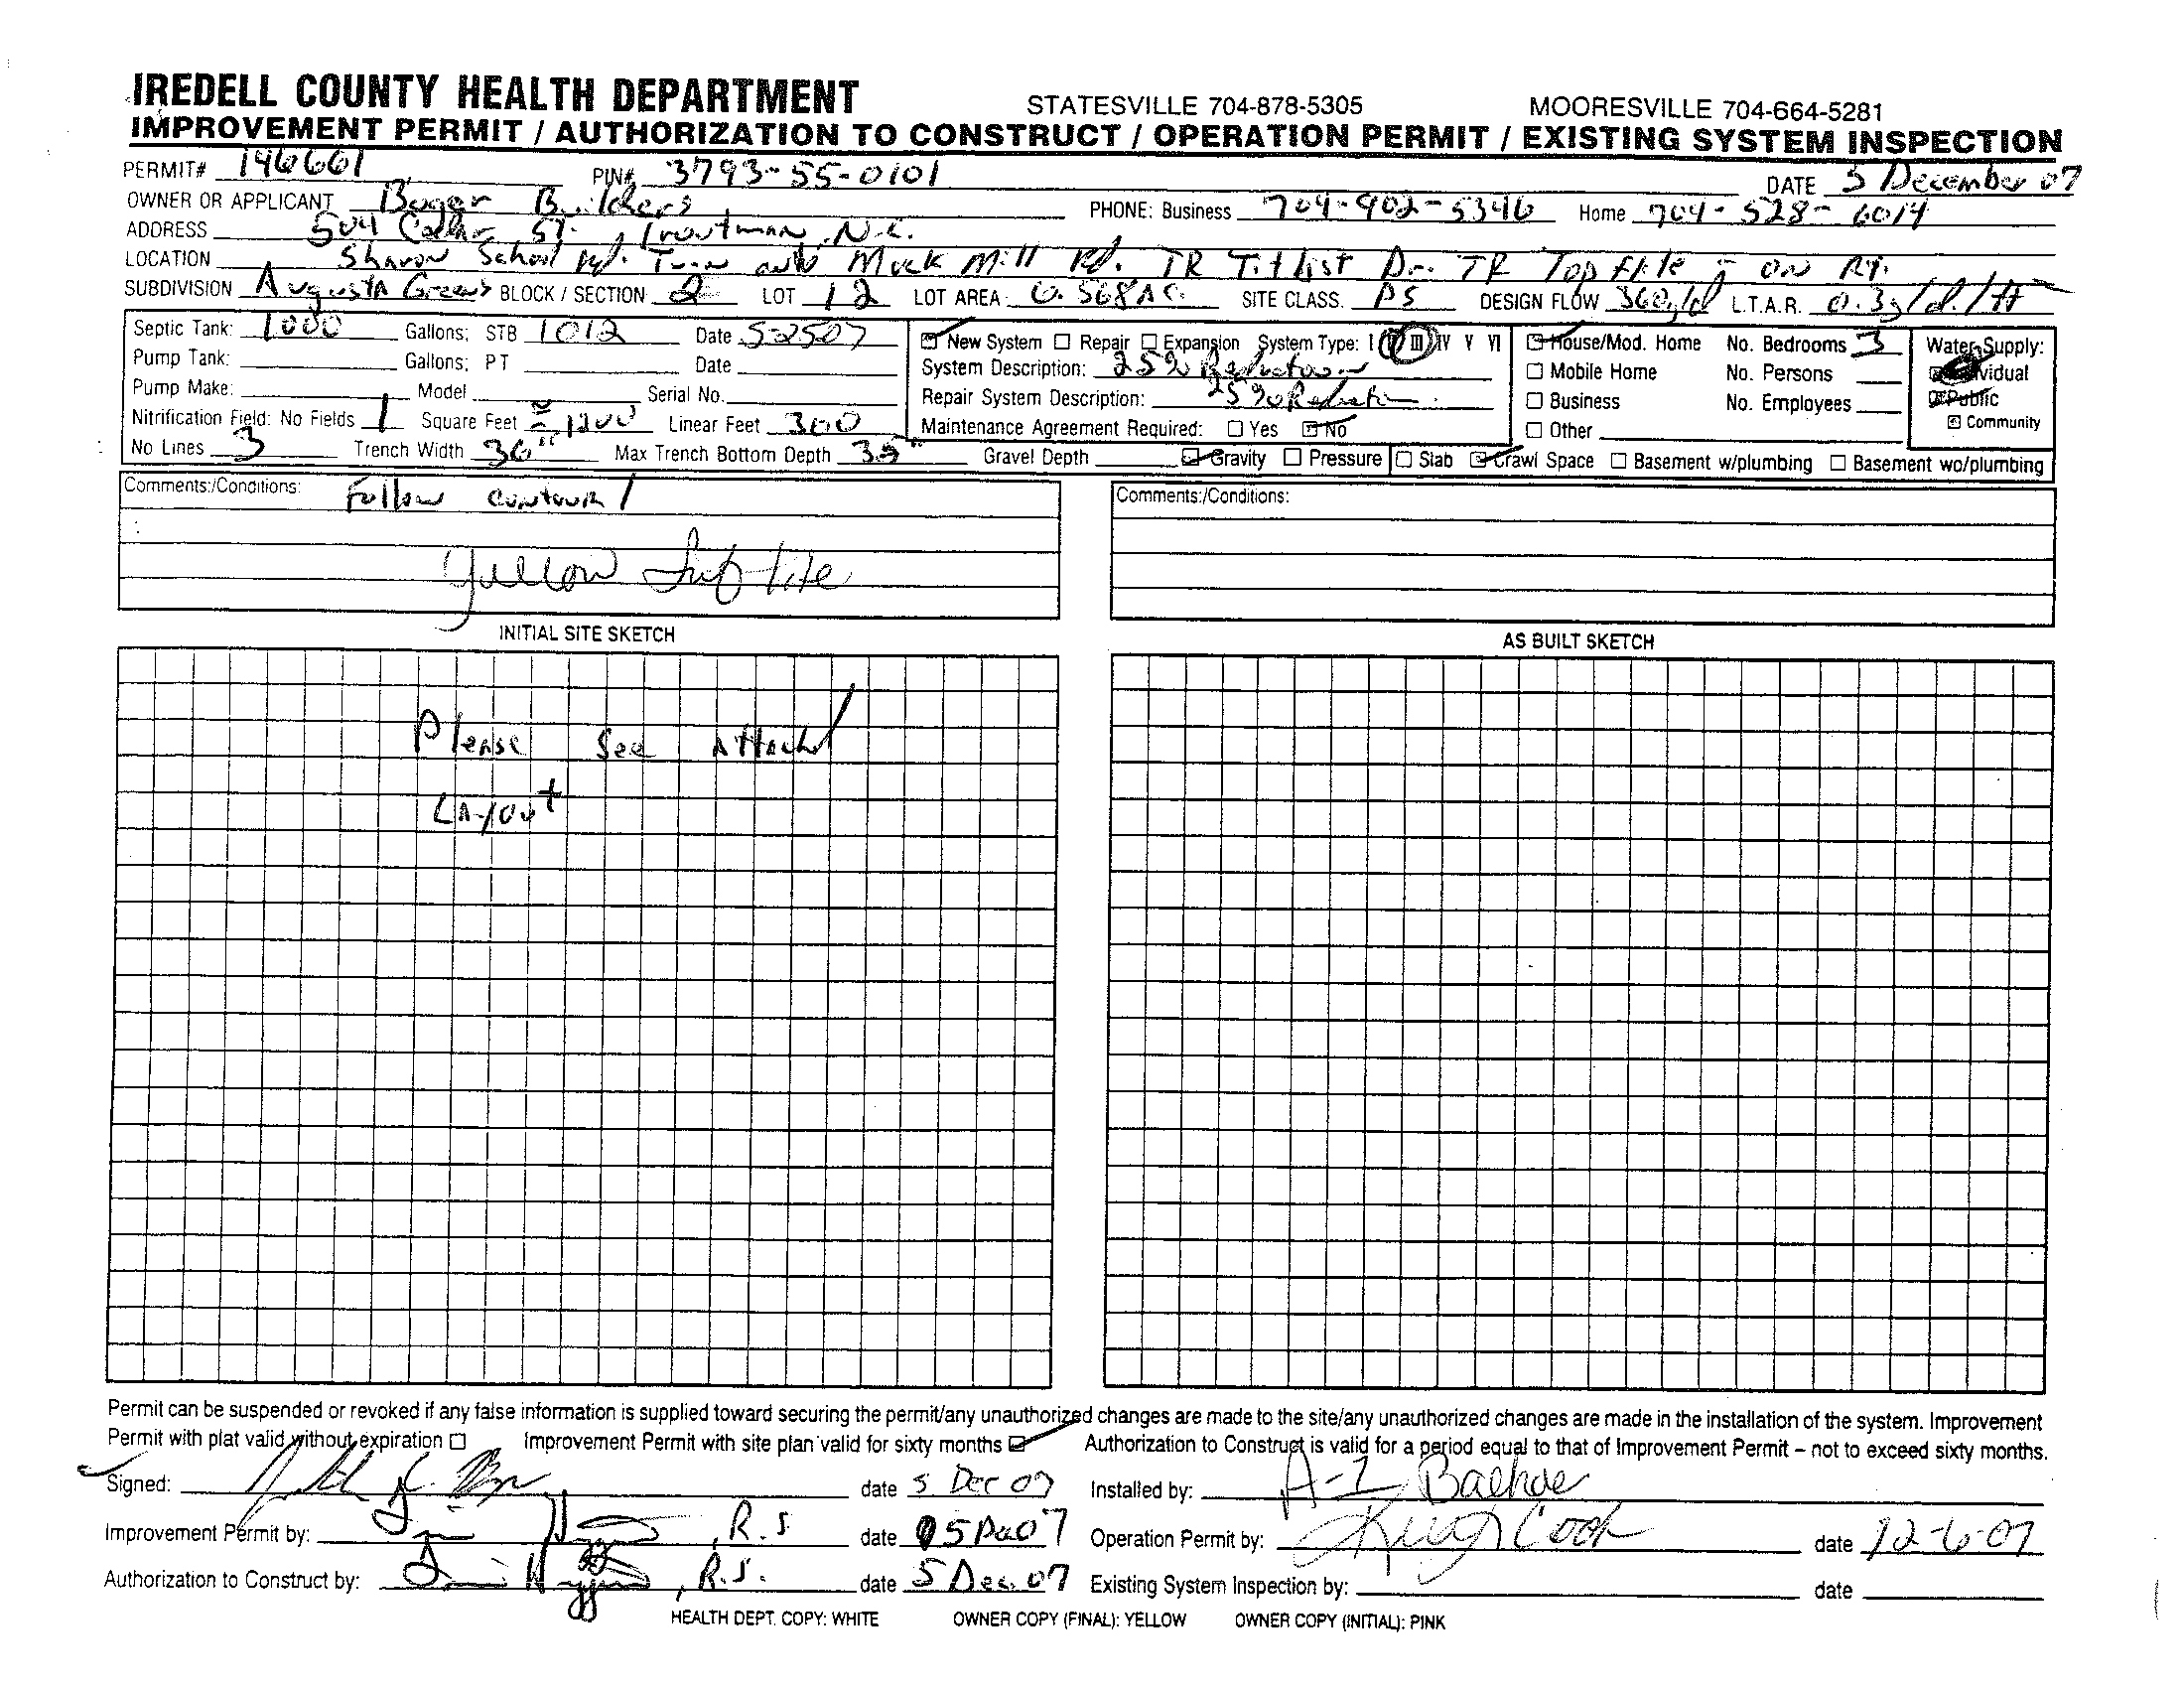 IREDELL COUNTY HEALTH DEPARTMENT STATESVILLE 704-878-5305 MOORESVILLE 704-664-5281
IMPROVEMENT PERMIT / AUTHORIZATION TO CONSTRUCT / OPERATION PERMIT / EXISTING SYSTEM INSPECTION
PERMIT# 146661 PIN# 3793-55-0101 DATE 5 December 07
OWNER OR APPLICANT Builders PHONE: Business 704-902-5346 Home 704-528-6014
ADDRESS 504 St. Troutman, N.C.
LOCATION Sharon School Rd. Turn onto Muck Mill Rd. TR Titlist Dr. TR Top flite - ON Rt.
SUBDIVISION Augusta Greens BLOCK / SECTION 2 LOT 12 LOT AREA 0.568 AC. SITE CLASS. PS DESIGN FLOW 360 g/d L.T.A.R. 0.3 g/d/ft
Septic Tank: 1000 Gallons; STB 1012 Date 5-25-07 New System Repair Expansion System Type: I II III IV V VI House/Mod. Home No. Bedrooms 3 Water Supply:
Pump Tank: Gallons; PT Date System Description: 25% Reduction Mobile Home No. Persons
Pump Make: Model Serial No. Repair System Description: 25% Reduction Business No. Employees Public
Nitrification Field: No Fields 1 Square Feet ≈ 1200 Linear Feet 300 Maintenance Agreement Required: Yes No Other Community
No Lines 3 Trench Width 36" Max Trench Bottom Depth Gravel Depth Gravity Pressure Slab Crawl Space Basement w/plumbing Basement wo/plumbing
Comments:/Conditions: Follow contour! Comments:/Conditions:
INITIAL SITE SKETCH AS BUILT SKETCH
Please See Attached
LAyout
Permit can be suspended or revoked if any false information is supplied toward securing the permit/any unauthorized changes are made to the site/any unauthorized changes are made in the installation of the system. Improvement
Permit with plat valid without expiration Improvement Permit with site plan valid for sixty months Authorization to Construct is valid for a period equal to that of Improvement Permit – not to exceed sixty months.
Signed: date 5 Dec 07 Installed by: A-1 Backhoe
Improvement Permit by: , R.S date 05 Dec 07 Operation Permit by: date 12-6-07
Authorization to Construct by: , R.S. date 5 Dec. 07 Existing System Inspection by: date
HEALTH DEPT. COPY: WHITE OWNER COPY (FINAL): YELLOW OWNER COPY (INITIAL): PINK